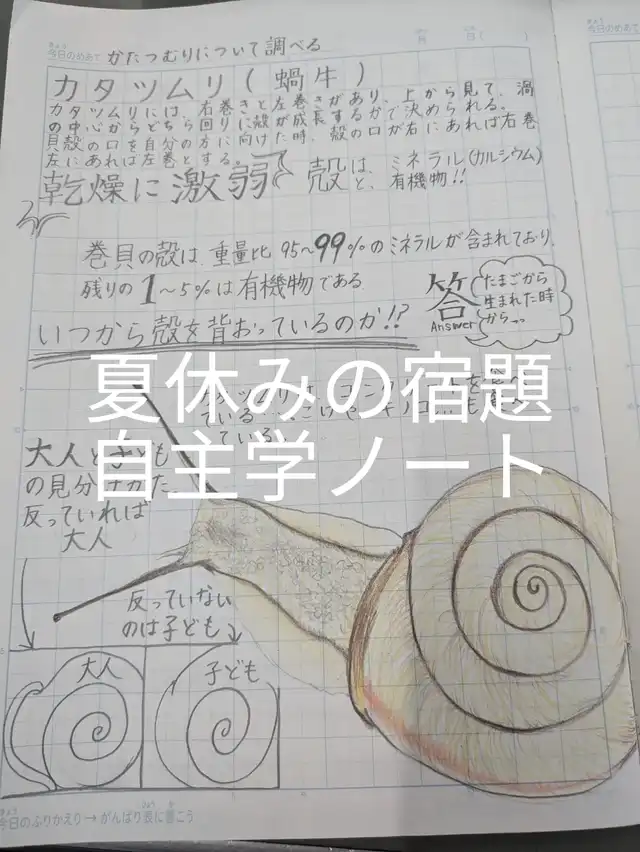 今日のめあて かたつむりについて調べる
月 日( )
カタツムリ(蝸牛)
カタツムリには、右巻きと左巻きがあり、上から見て、渦
の中心からどちら回りに殻が成長するかで決められる。
貝殻の口を自分の方に向けた時、殻の口が右にあれば右巻
左にあれば左巻とする。
乾燥に激弱
殻は、ミネラル(カルシウム)
と、有機物!!
巻貝の殻は、重量比95~99%のミネラルが含まれており、
残りの1~5%は有機物である
いつから殻を背おっているのか!?
答
Answer
たまごから
生まれた時
から…
夏休みの宿題
自主学ノート
ている
ている。
大人と子ども
の見分けかた
反っていれば
大人
反っていない
のは子ども
大人
子ども
今日のふりかえり→がんばり表に書こう